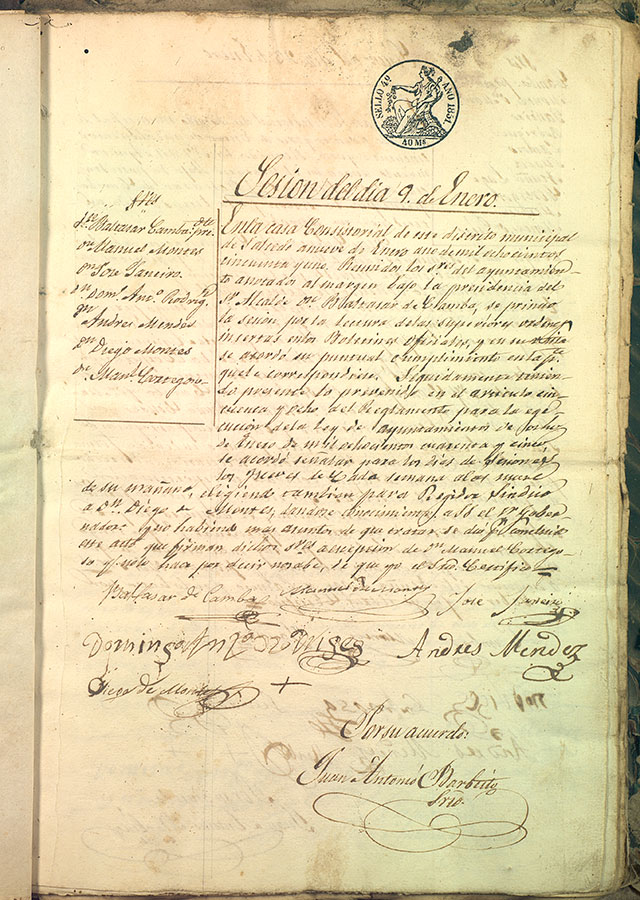 SELLO 4º AÑO 1851.
40 Ms
Sesion del dia 9. de Enero.
Sres
Dn Baltasar Camba: Pte
Dn Manuel Montes
Dn Jose Janeiro.
Dn Domo. Anto. Rodrigz
Dn Andres Mendes
Dn Diego Montes
Dn Manl. Cortegoso
En la casa Consistorial de este distrito municipal
de Salcedo a nueve de Enero año de mil ochocientos
cincuenta y uno. Reunidos los Sres del ayuntamien-
to anotados al margen bajo la presidencia del
Sr. Alcalde Dn Baltasar de Camba, se principió
la sesion por la lectura de las superiores ordenes
insertas en los Boletines oficiales, y en su vista
se acordó su puntual cumplimiento en la pte
que le corresponde. Seguidamente tenien-
do presente lo prevenido en el articulo cin-
cuenta y ocho del Reglamento para la eje-
cucion de la Ley de ayuntamientos de ocho
de Enero de mil ochocientos cuarenta y cinco
se acordó señalar para los dias de sesiones
los Jueves de Cada semana a las nueve
de su mañana, eligiendo tambien para Regidor Sindico
a Dn Diego de Montes, dandose conocimiento a SS el Sr Gober-
nador. Y no habiendo mas asuntos de que tratar, se dió pr concluido
este acto que firman dichos Sres a excepcion de Dn Manuel Cortego-
so qe no lo hace por decir no sabe, de que yo el Srio. Certifico
Baltasar de Camba Manuel de Montes Jose Janeiro
Domingo Antº Rodrigez Andres Mendez
Diego de Montes +
Por su acuerdo.
Juan Antonio Barbeito
Srio.